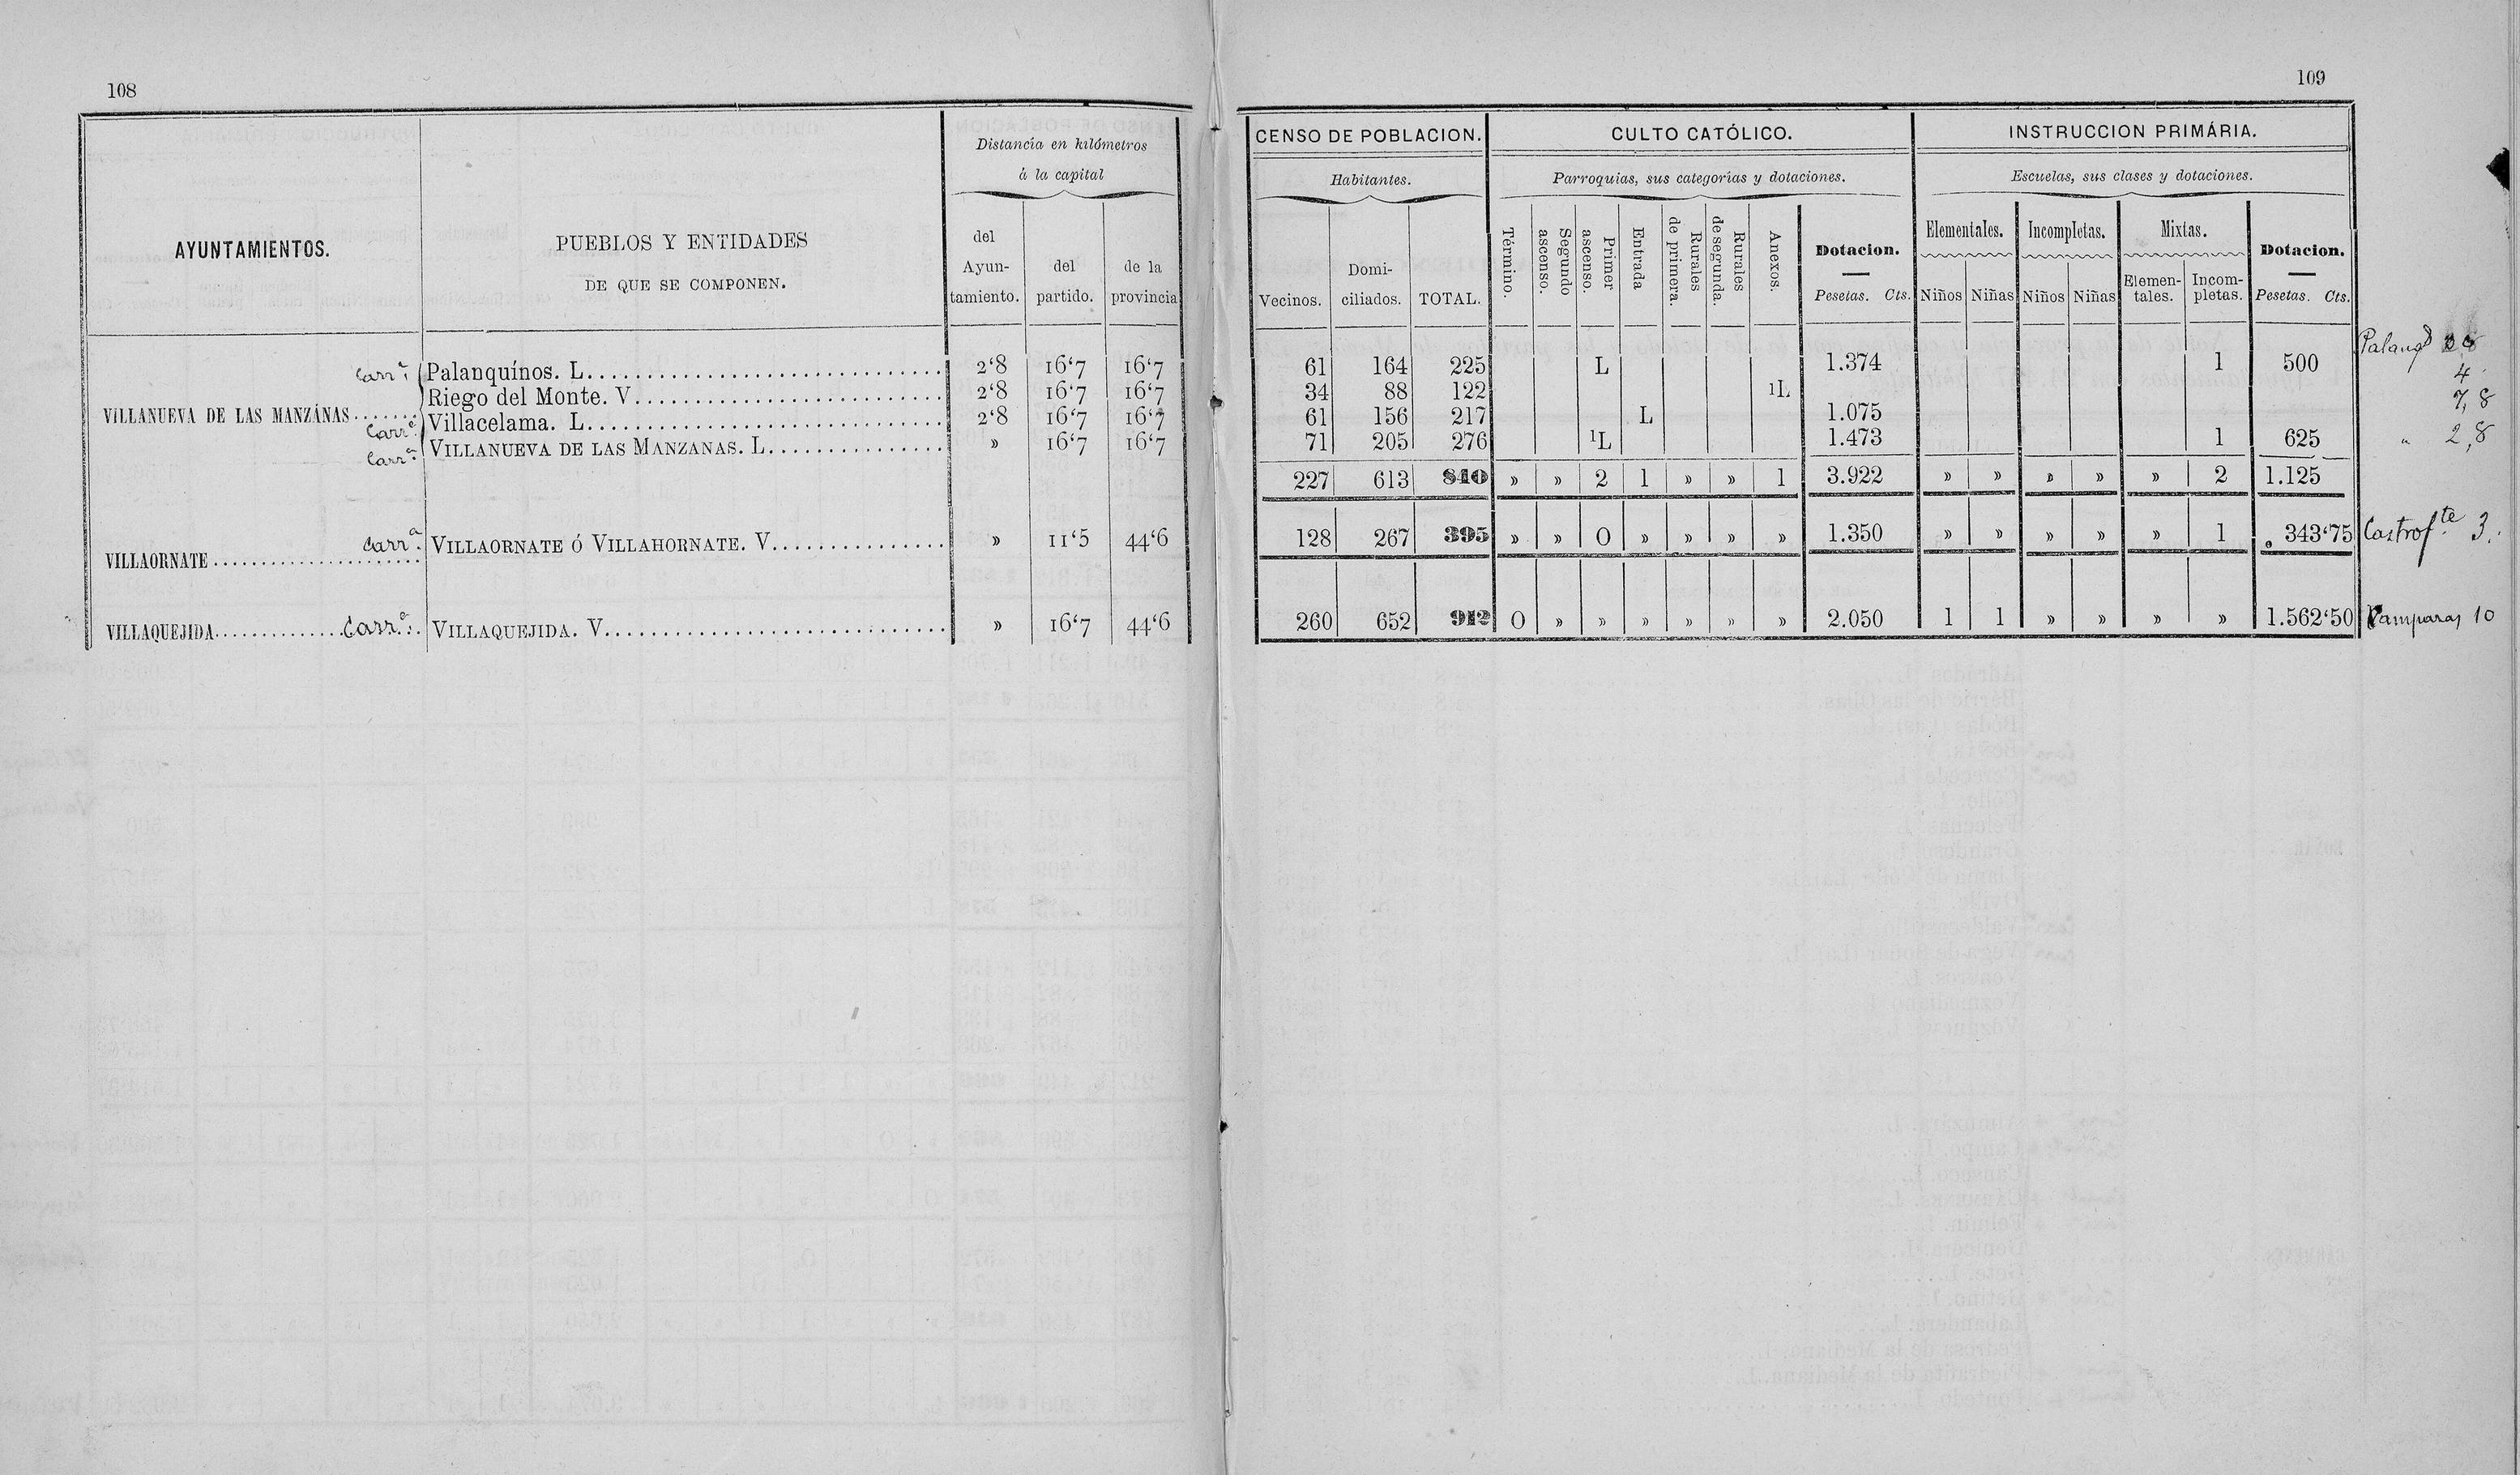 108
109
AYUNTAMIENTOS.
PUEBLOS Y ENTIDADES
DE QUE SE COMPONEN.
Distancia en kilómetros
á la capital
del Ayun-tamiento.
del partido.
de la provincia
CENSO DE POBLACION.
Habitantes.
Vecinos.
Domi-ciliados.
TOTAL.
CULTO CATÓLICO.
Parroquias, sus categorías y dotaciones.
Término.
Segundo ascenso.
Primer ascenso.
Entrada
Rurales de primera.
Rurales de segunda.
Anexos.
Dotacion.
Pesetas. Cts.
INSTRUCCION PRIMÁRIA.
Escuelas, sus clases y dotaciones.
Elementales.
Niños Niñas
Incompletas.
Niños Niñas
Mixtas.
Elemen-tales.
Incom-pletas.
Dotacion.
Pesetas. Cts.
VILLANUEVA DE LAS MANZÁNAS.......
Carrª Palanquínos. L. 2‘8 16‘7 16‘7 61 164 225 L 1.374 1 500
Riego del Monte. V. 2‘8 16‘7 16‘7 34 88 122 1L 4
Carrª Villacelama. L. 2‘8 16‘7 16‘7 61 156 217 L 1.075 7,8
Carrª VILLANUEVA DE LAS MANZANAS. L. » 16‘7 16‘7 71 205 276 1L 1.473 1 625 " 2,8
227 613 840 » » 2 1 » » 1 3.922 » » » » » 2 1.125
VILLAORNATE Carrª VILLAORNATE Ó VILLAHORNATE. V. » 11‘5 44‘6 128 267 395 » » O » » » » 1.350 » » » » » 1 343‘75 Castrofte 3.
VILLAQUEJIDA Carrª VILLAQUEJIDA. V. » 16‘7 44‘6 260 652 912 O » » » » » » 2.050 1 1 » » » » 1.562‘50 10